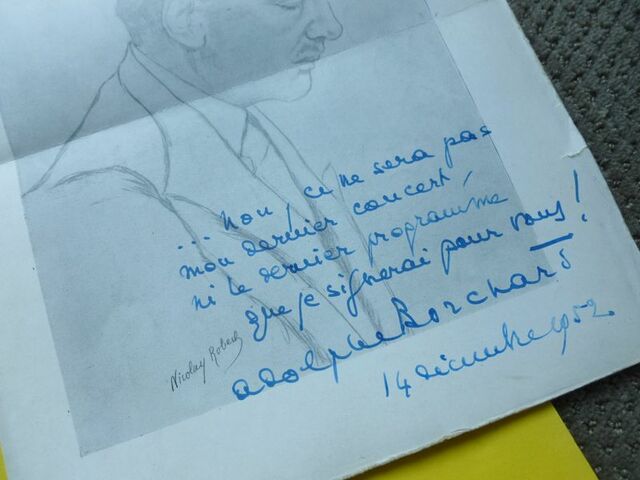 ... non, ce ne sera pas
mon dernier concert,
ni le dernier programme
que je signerai pour vous!
Adolphe Borchard
14 décembre 1952
Nicolay Robert